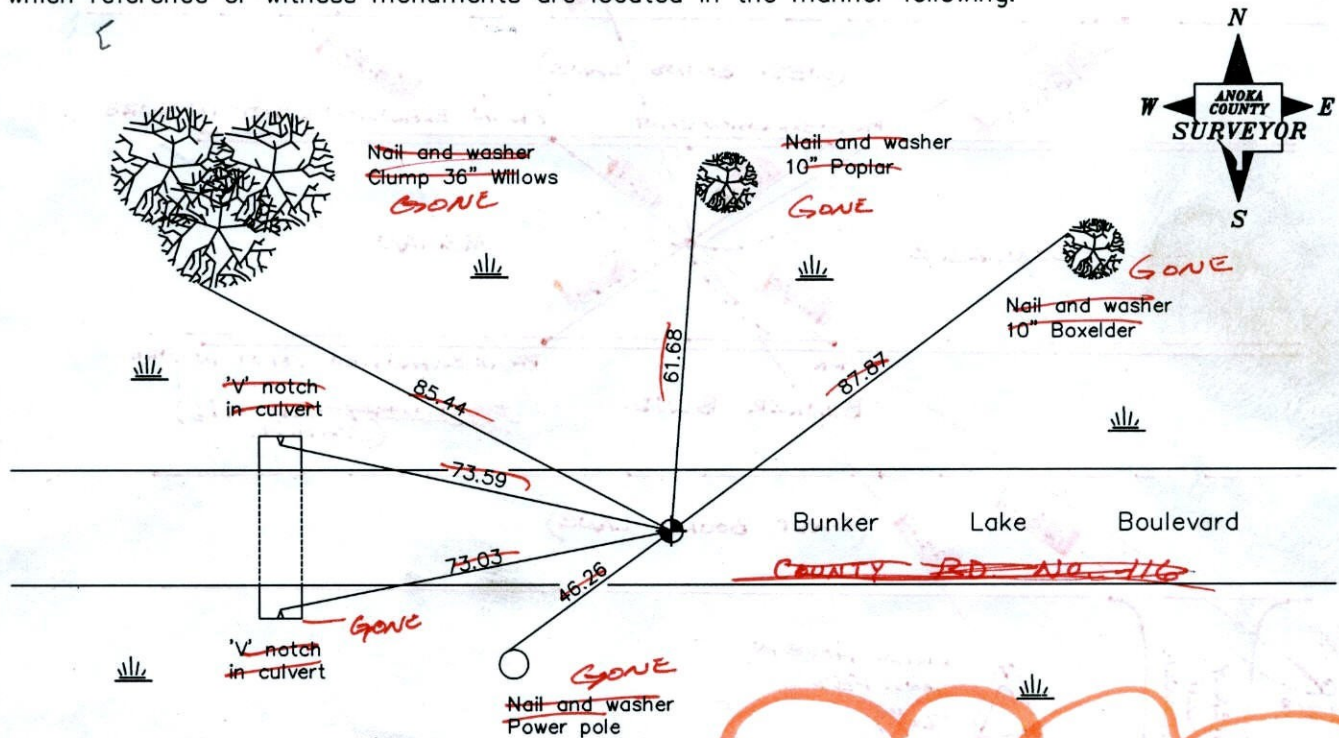 which reference or witness monuments are located in the manner following:
N
W
ANOKA
COUNTY
SURVEYOR
E
S
Nail and washer
Clump 36" Willows
GONE
Nail and washer
10" Poplar
GONE
GONE
Nail and washer
10" Boxelder
61.68
87.87
85.44
'V' notch
in culvert
73.59
Bunker Lake Boulevard
73.03
COUNTY RD. NO. 116
46.26
GONE
'V' notch
in culvert
GONE
Nail and washer
Power pole